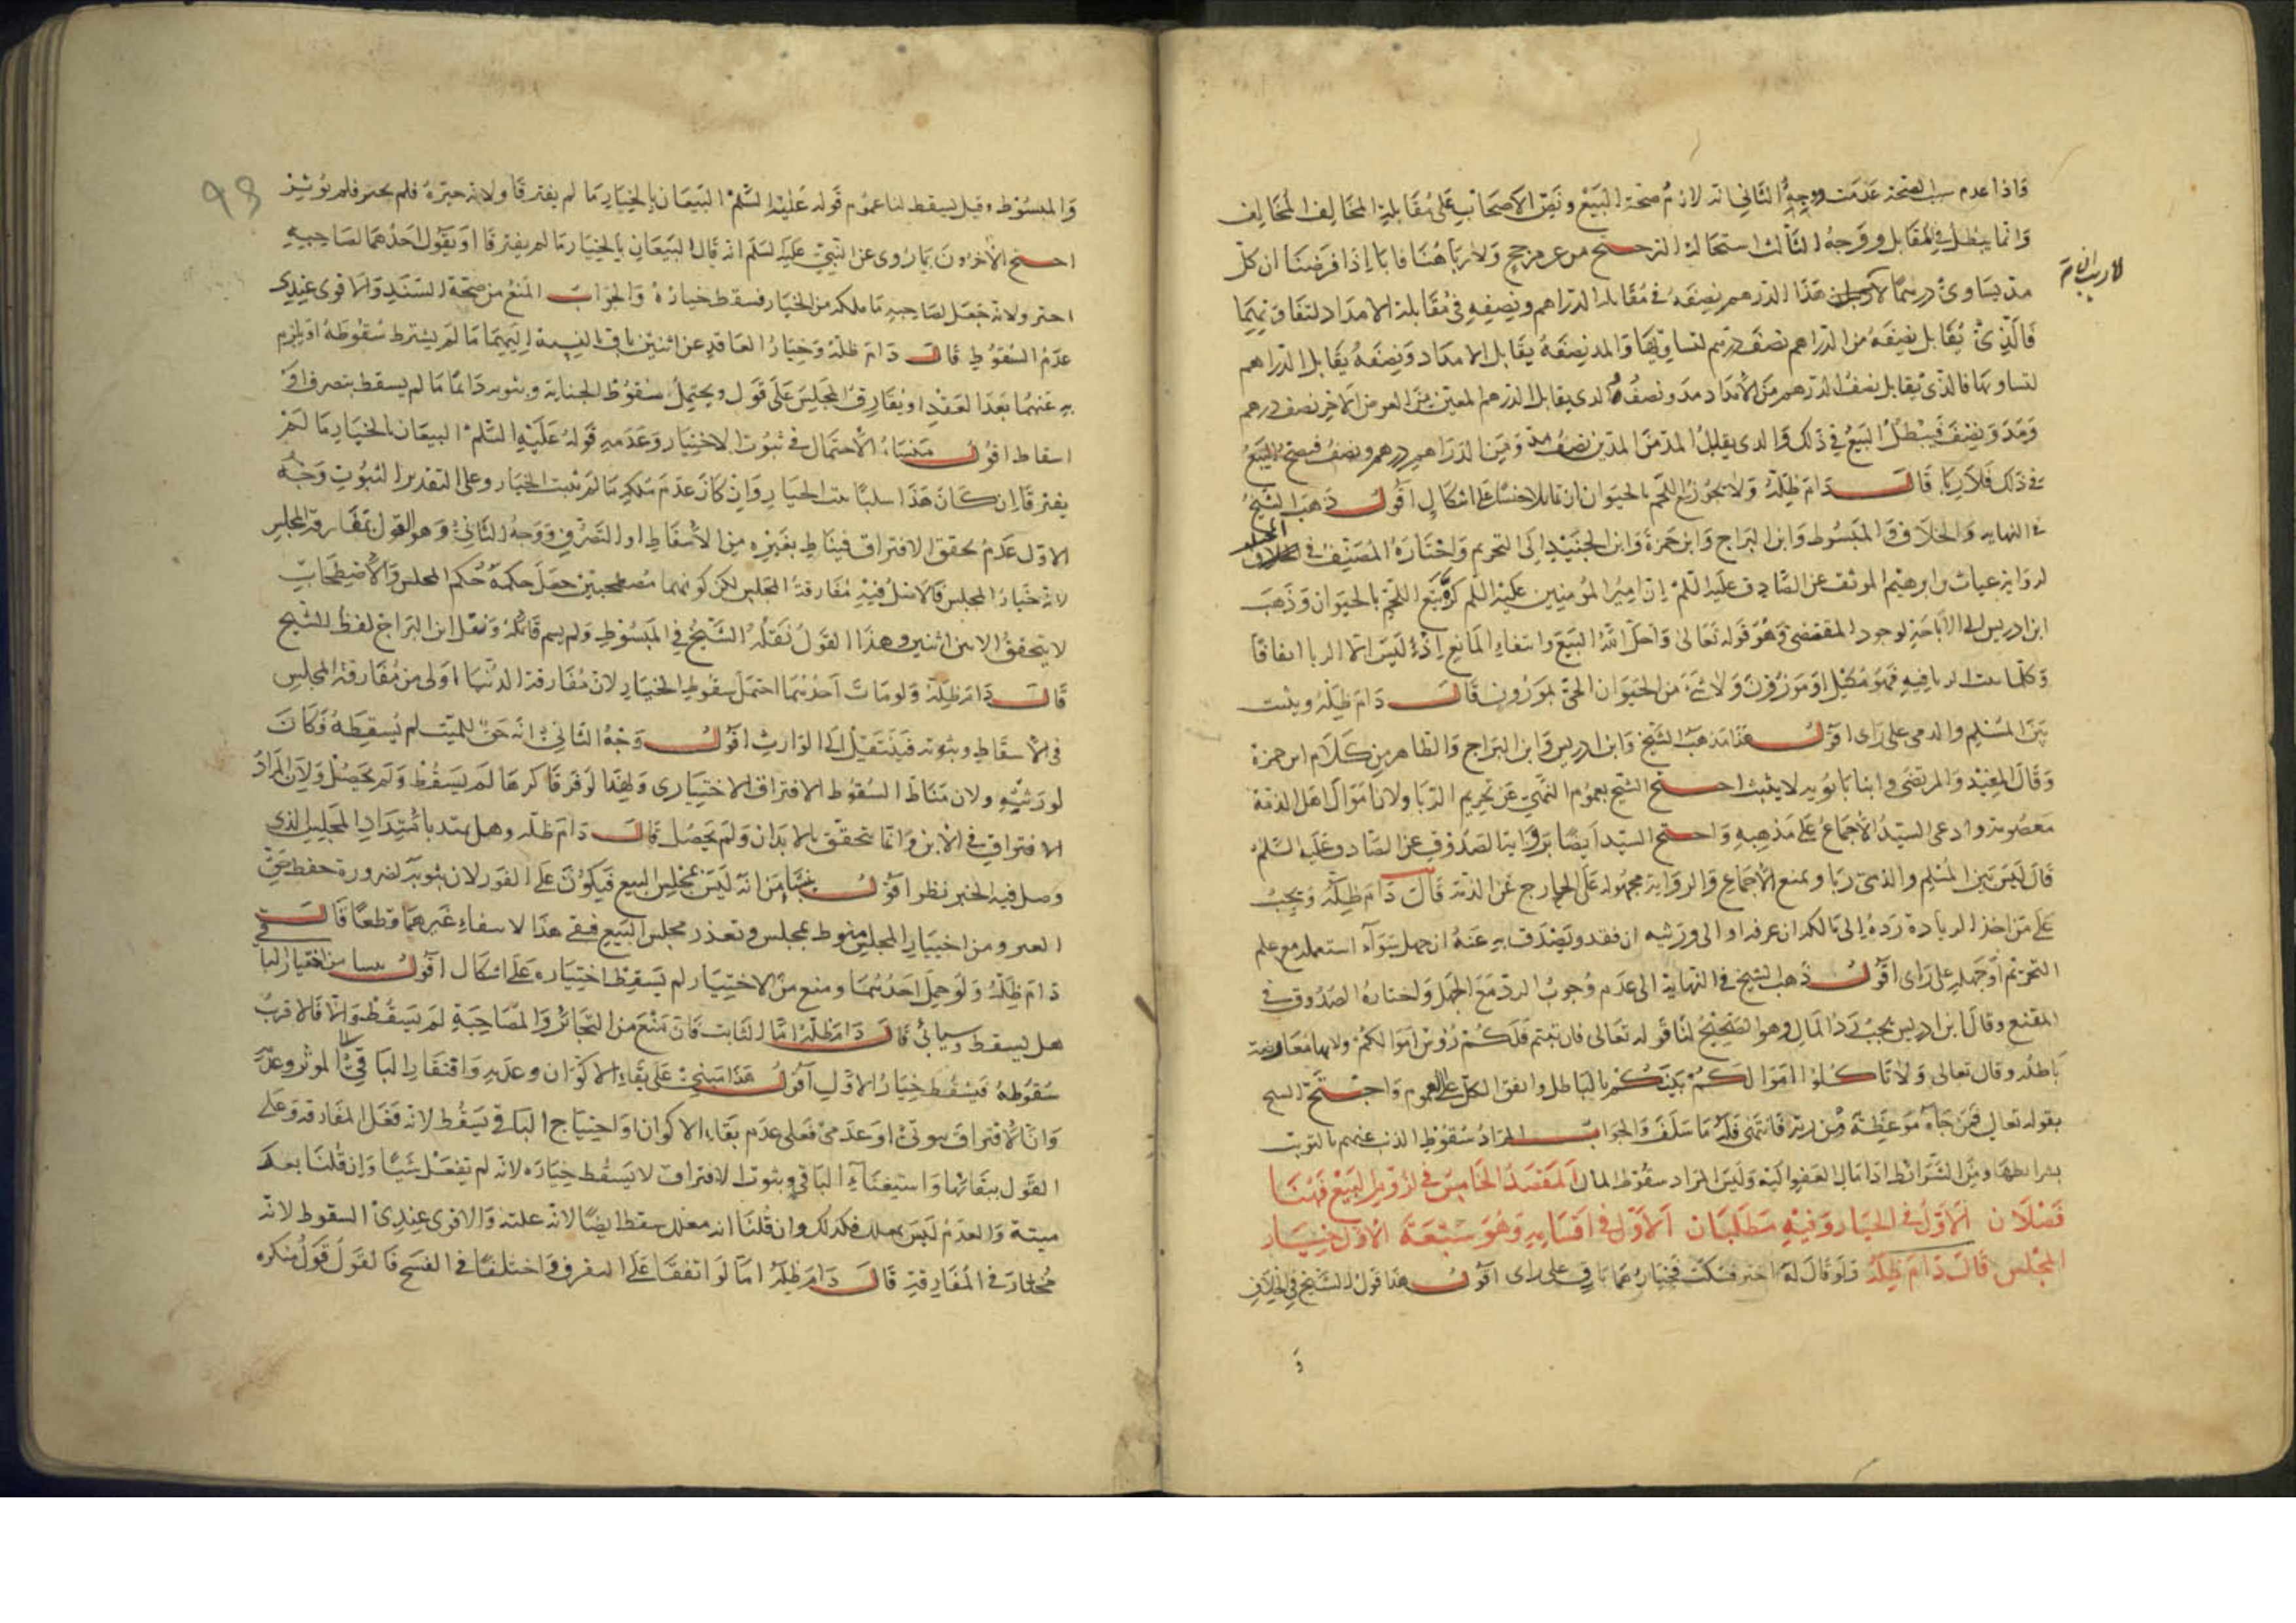 فاذا عدم سبب الصحة عدمت ووجه الثاني انه لازم صحة البيع ونص الاصحاب على مقابلة المخالف المخالف
وانما يبطل في المقابل ووجه الثالث استحالة الترجيح من غير مرجح ولا ربا هنا فانا اذا فرضنا ان كل
مد يساوي درهما هذا الدرهم نصفه في مقابلة الدراهم ونصفه في مقابلة الامداد لتفاوتهما
فالذي يقابل نصفه من الدراهم نصف درهم لتساويهما والمد نصفه يقابل الامداد ونصفه يقابل الدراهم
لتساويهما فالذي يقابل نصف الدرهم من الامداد مد ونصف والذي يقابل الدرهم المعين من العوض الاخر نصف درهم
ومد ونصف فيبطل البيع في ذلك والذي يقابل المد من المدين نصف مد ومن الدراهم درهم ونصف فيصح البيع
في ذلك فلا ربا قال دام ظله ولا يجوز بيع اللحم بالحيوان ان تماثلا جنسا على اشكال اقول ذهب الشيخ
في النهايه والخلاف والمبسوط وابن البراج وابن حمزة وابن الجنيد الى التحريم واختاره المصنف في المختلف
لرواية غياث بن ابرهيم الموثق عن الصادق عليه السلم ان امير المؤمنين عليه السلم كره بيع اللحم بالحيوان وذهب
ابن ادريس الى الاباحة لوجود المقتضي وهو قوله تعالى واحل الله البيع وانتفاء المانع اذ ليس الا الربا اتفاقا
وكلما يثبت الربا فيه فهو مكيل او موزون ولا شئ من الحيوان الحي بموزون قال دام ظله ويثبت
بين المسلم والذمي على راى اقول هذا مذهب الشيخ وابن ادريس وابن البراج والظاهر من كلام ابن حمزة
وقال المفيد والمرتضى وابنا بابويه لا يثبت احتج الشيخ بعموم النهي عن تحريم الربا ولان اموال اهل الذمة
معصومة وادعى السيد الاجماع على مذهبه واحتج السيد ايضا برواية الصدوق عن الصادق عليه السلم
قال ليس بين المسلم والذمي ربا ويمنع الاجماع والرواية محمولة على الخارج عن الذمة قال دام ظله ويجب
على من اخذ الزيادة رده الى مالكه ان عرفه او الى ورثته ان فقد ويتصدق به عنه ان جهل سواء استعمله مع علم
التحريم او جهله على راى اقول ذهب الشيخ في النهاية الى عدم وجوب الرد مع الجهل واختاره الصدوق في
المقنع وقال ابن ادريس يجب رد المال وهو الصحيح لنا قوله تعالى فان تبتم فلكم رؤس اموالكم ولانها معاوضة
باطلة وقال تعالى ولا تاكلوا اموالكم بينكم بالباطل واتفق الكل على العموم واحتج الشيخ
بقوله تعالى فمن جآءه موعظة من ربه فانتهى فله ما سلف والجواب المراد سقوط الذنب عنهم بالتوبة
بشرائطها ومن الشرائط اداء مال الغير اليه وليس المراد سقوط المال المقصد الخامس في لزوم البيع فهنا
فصلان الاول في الخيار وفيه مطلبان الاول في اقسامه وهو سبعة الاول خيار
المجلس قال دام ظله ولو قال له اختر فسكت فخيارهما باق على راى اقول هذا قول الشيخ في الخلاف
و
والمبسوط وقيل يسقط لنا عموم قوله عليه السلم البيعان بالخيار ما لم يفترقا ولانه خيره فلم يختر فلم يؤثر
احتج الاخرون بما روى عن النبي عليه السلم انه قال البيعان بالخيار ما لم يفترقا او يقول احدهما لصاحبه
اختر ولانه جعل لصاحبه ما ملكه من الخيار فسقط خياره والجواب المنع من صحة السند والاقوى عندي
عدم السقوط قال دام ظله وخيار العاقد عن اثنين باق بالنسبة اليهما ما لم يشترط سقوطه او يلتزم
به عنهما بعد العقد او يفارق المجلس على قول ويحتمل سقوط الخيار وثبوته دائما ما لم يسقط بتصرف او
اسقاط اقول منشاء الاحتمال في ثبوت الاختيار وعدمه قوله عليه السلم البيعان بالخيار ما لم
يفترقا ان كان هذا سلبا يثبت الخيار وان كان عدم ملكه ما لم يثبت الخيار وعلى التقدير الثبوت وجه
الاول عدم تحقق الافتراق فيناط بغيره من الاسقاط او التصرف ووجه الثاني وهو القول بمفارقة المجلس
لانه خيار المجلس فالاصل فيه مفارقة المجلس لكن كونهما مصطحبين حصل حكمه حكم المجلس والاصطحاب
لا يتحقق الا بين اثنين وهذا القول نقله الشيخ في المبسوط ولم يسم قائله ونقل ابن البراج لفظ الشيخ
قال دام ظله ولو مات احدهما احتمل سقوط الخيار لان مفارقة الدنيا اولى من مفارقة المجلس
في الاسقاط وثبوته فينتقل الى الوارث اقول وجه الثاني انه حق للميت لم يسقطه فكان
لورثته ولان مناط السقوط الافتراق الاختيارى ولهذا لو فرقا كرها لم يسقط ولم يحصل ولان المراد
الافتراق في الاين وانما يتحقق بالابدان ولم يحصل قال دام ظله وهل يمتد بامتداد المجلس الذي
وصل فيه الخبر نظر اقول ينشا من انه ليس بمجلس البيع فيكون على الفور لان ثبوته لضرورة حفظ حق
الغير ومن اختيار المجلس منوط بمجلس وتعذر مجلس البيع فبقي هذا لانتفاء غيرهما قطعا قال
دام ظله ولو حمل احدهما ومنع من الاختيار لم يسقط اختياره على اشكال اقول
هل يسقط وسيأتي قال دام ظله اما الثابت فان منع من التخائر والمصاحبة لم يسقط والا فالاقرب
سقوطه فيسقط خيار الاول اقول هذا مبني على بقاء الاكوان وعدمه وافتقار الباقي الى المؤثر وعدمه
وان الافتراق ثبوتي او عدمي فعلى عدم بقاء الاكوان واحتياج الباقي يسقط لانه فعل المفارقة وعلى
القول ببقائها واستغناء الباقي وثبوت الافتراق لا يسقط خياره لانه لم يفعل شيئا وان قلنا بعد
ميتة والعدم ليس بعلة فكذلك وان قلنا انه معلل سقط ايضا لانه علته والاقوى عندي السقوط لانه
مختار في المفارقة قال دام ظله اما لو اتفقا على التفرق واختلفا في الفسخ فالقول قول منكره